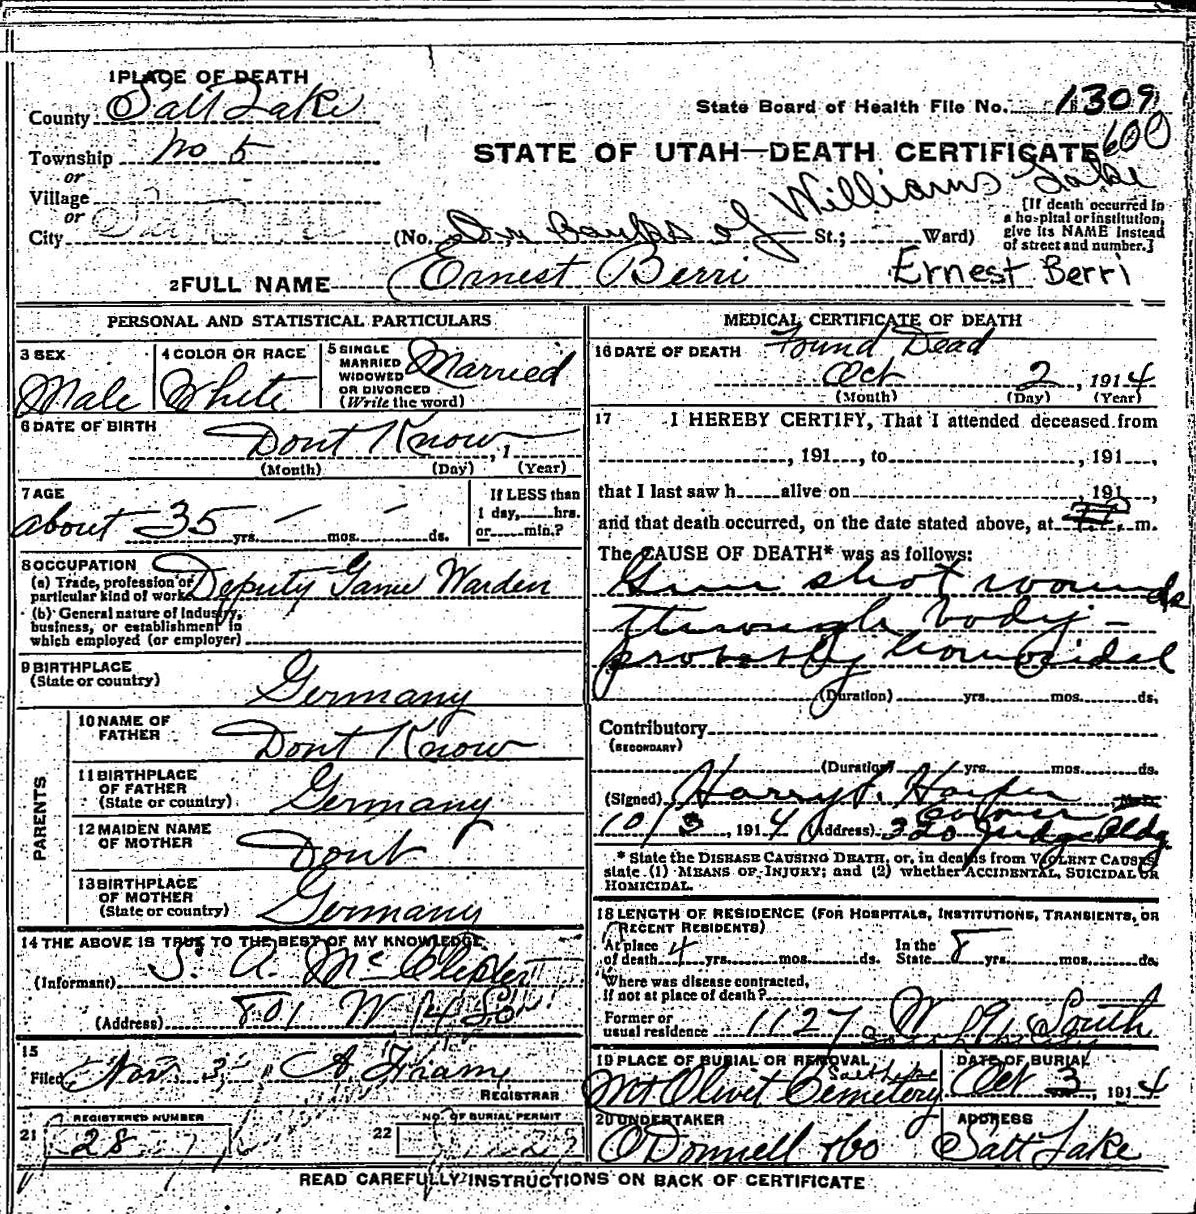 1 PLACE OF DEATH
County Salt Lake
State Board of Health File No. 1309
Township No 5
600
or
STATE OF UTAH—DEATH CERTIFICATE
Village
or
City
(No. On banks of Williams Lake St.; Ward)
[If death occurred in a hospital or institution, give its NAME instead of street and number.]
2 FULL NAME Ernest Berri Ernest Berri
PERSONAL AND STATISTICAL PARTICULARS
3 SEX
Male
4 COLOR OR RACE
White
5 SINGLE MARRIED WIDOWED OR DIVORCED (Write the word)
Married
6 DATE OF BIRTH
Dont Know, 1
(Month) (Day) (Year)
7 AGE
about 35 yrs. mos. ds.
If LESS than 1 day, hrs. or min.?
8 OCCUPATION
(a) Trade, profession or particular kind of work Deputy Game Warden
(b) General nature of Industry, business, or establishment in which employed (or employer)
9 BIRTHPLACE
(State or country)
Germany
PARENTS
10 NAME OF FATHER
Dont Know
11 BIRTHPLACE OF FATHER
(State or country)
Germany
12 MAIDEN NAME OF MOTHER
Dont
13 BIRTHPLACE OF MOTHER
(State or country)
Germany
14 THE ABOVE IS TRUE TO THE BEST OF MY KNOWLEDGE
(Informant) S. A.
(Address) 801 W 14 So
15
Filed Nov. 3
REGISTRAR
REGISTERED NUMBER
21 28
NO. OF BURIAL PERMIT
22
MEDICAL CERTIFICATE OF DEATH
16 DATE OF DEATH Found Dead
Oct 2, 1914
(Month) (Day) (Year)
17 I HEREBY CERTIFY, That I attended deceased from
, 191 , to , 191 ,
that I last saw h alive on 191 ,
and that death occurred, on the date stated above, at m.
The CAUSE OF DEATH* was as follows:
Gun shot wounds
through body -
probably homocidal
(Duration) yrs. mos. ds.
Contributory
(SECONDARY)
(Duration) yrs. mos. ds.
(Signed) Harry S. Harper
Coroner
10/3, 1914 (Address) 320 Judge Bldg.
* State the DISEASE CAUSING DEATH, or, in deaths from VIOLENT CAUSES,
state (1) MEANS OF INJURY; and (2) whether ACCIDENTAL, SUICIDAL OR
HOMICIDAL.
18 LENGTH OF RESIDENCE (FOR HOSPITALS, INSTITUTIONS, TRANSIENTS, OR
RECENT RESIDENTS)
At place of death 4 yrs. mos. ds. In the State 8 yrs. mos. ds.
Where was disease contracted,
if not at place of death?
Former or usual residence 1127 W South
19 PLACE OF BURIAL OR REMOVAL
Mt Olivet Cemetery Salt Lake
DATE OF BURIAL
Oct 3, 1914
20 UNDERTAKER
O'Donnell & Co
ADDRESS
Salt Lake
READ CAREFULLY INSTRUCTIONS ON BACK OF CERTIFICATE